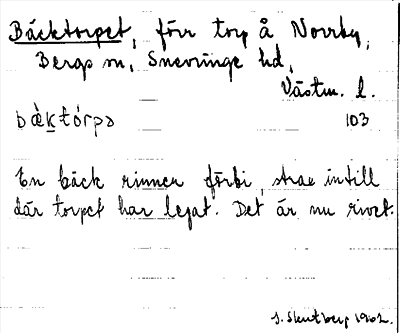 Bäcktorpet, förr torp å Norrby,
Bergs sn, Snevringe hd,
Västm. l.
bæ̀którpə 103
En bäck rinner förbi, strax intill
där torpet har legat. Det är nu rivet.